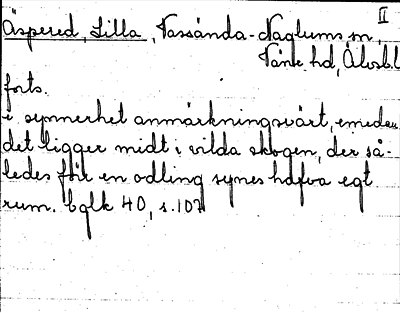 II
Äspered, Lilla, Vassända-Naglums sn,
Väne hd, Älvsb.l
forts.
i synnerhet anmärkningsvärt, emedan
det ligger midt i vilda skogen, der så-
ledes för en odling synes hafva egt
rum. Cglk 40, s.107